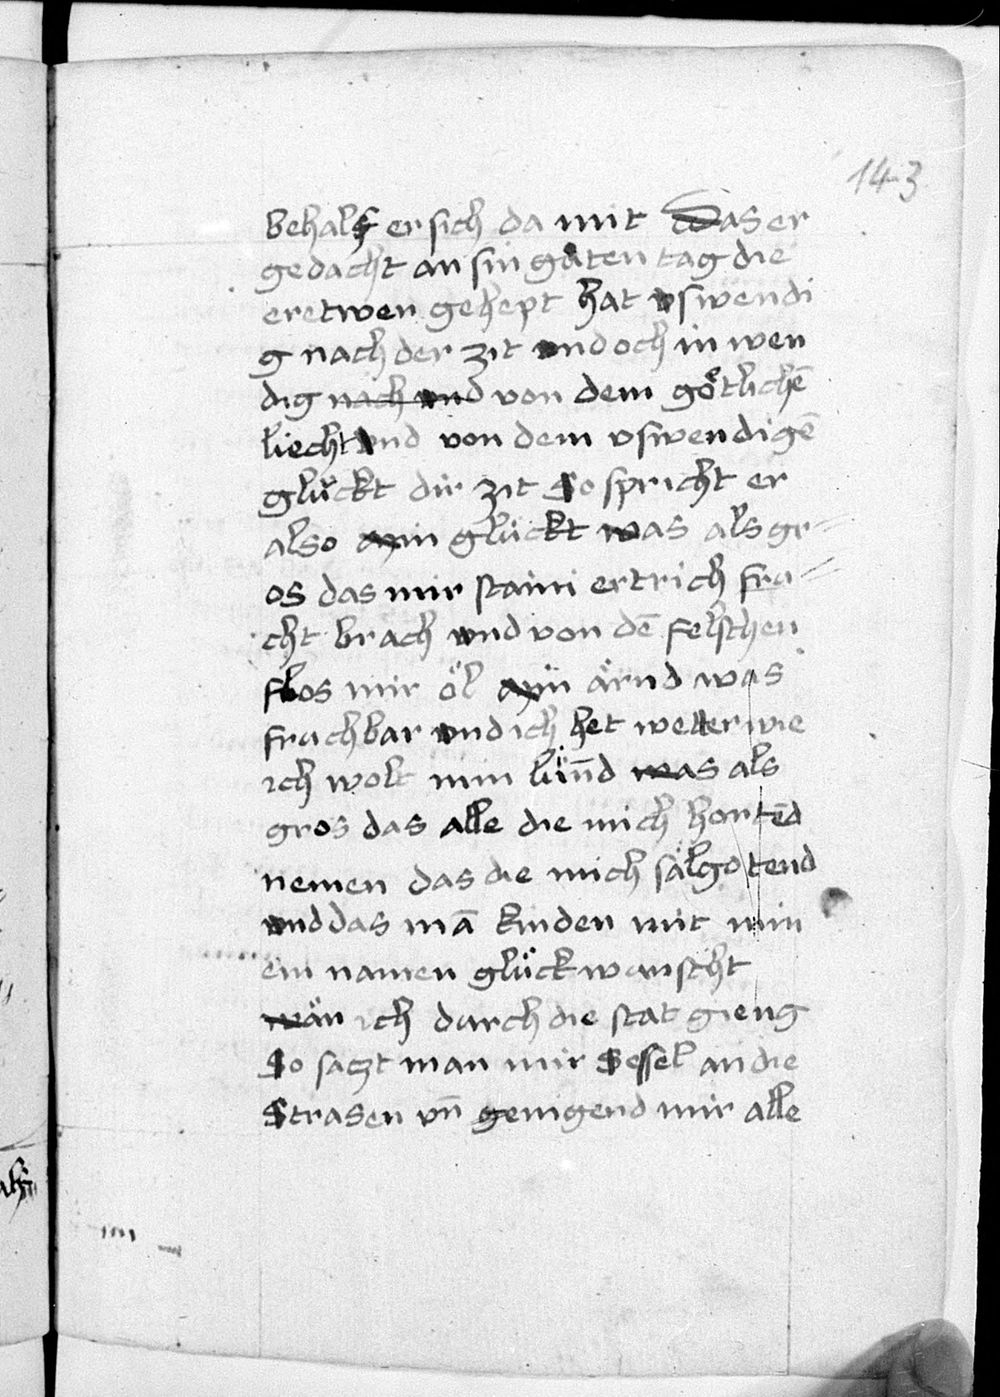 143
behalf er sich da mit Das er
gedacht an sin gůten tag die
er etwen gehept hat vswendi
g nach der zit vnd och in wen
dig nach vnd von dem götlichē
liecht vnd von dem vswendigē
glückt dir zit So spricht er
also ayin glückt was als gr=
os das mir staini ertrich fru=
cht brach vnd von dē felschen
flos mir öl ayin ärnd was
fruchbar vnd ich het wetter wie
ich wolt min lün̄d was als
gros das alle die mich hortēd
nemen das die mich sälgotend
vnd das mā kinden mit min
em namen glück wunscht
wän ich durch die stat gieng
So saczt man mir Sessel an die
Strasen vn̄ genigend mir alle